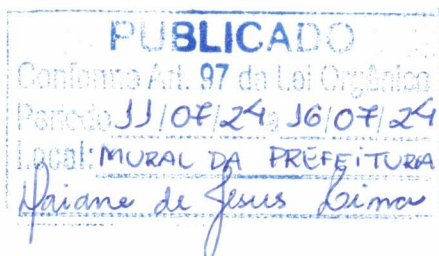 PUBLICADO
Conforme Art. 97 da Lei Orgânica
Período 11/07/24 a 16/07/24
Local: MURAL DA PREFEITURA
Daiane de Jesus Lima